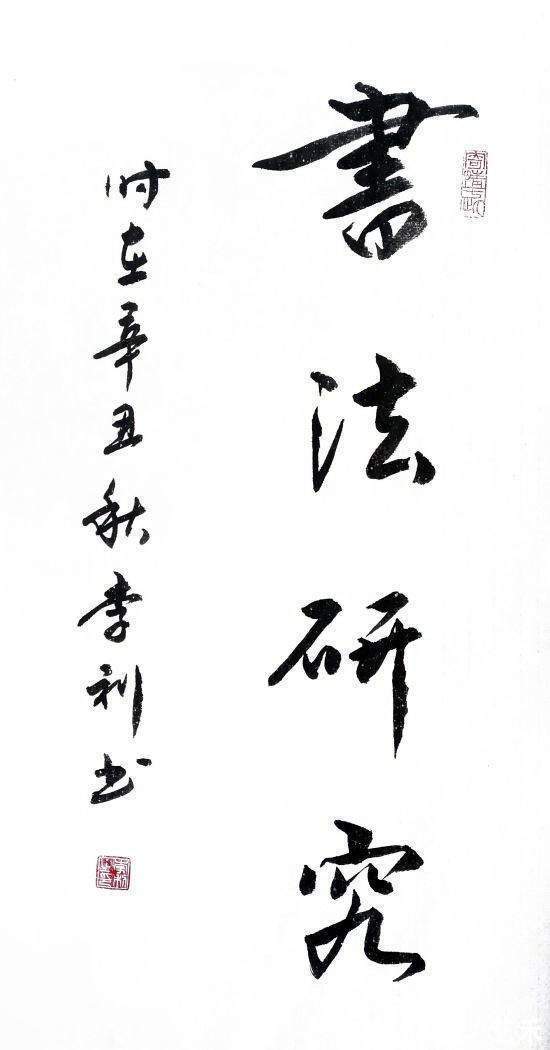 書法研究
时在辛丑秋李利书